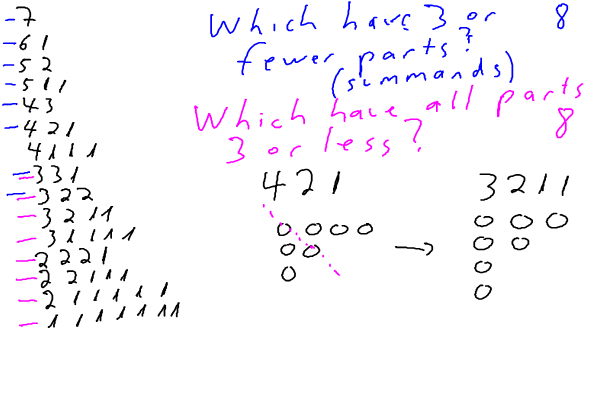 7
6 1
5 2
5 1 1
4 3
4 2 1
4 1 1 1
3 3 1
3 2 2
3 2 1 1
3 1 1 1 1
2 2 2 1
2 2 1 1 1
2 1 1 1 1 1
1 1 1 1 1 1 1
Which have 3 or 8
fewer parts?
(summands)
Which have all parts
3 or less? 8
4 2 1
3 2 1 1